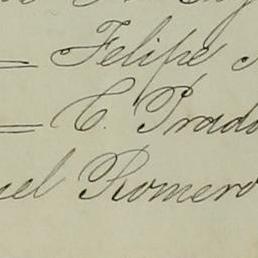 Felipe
C. Prado
uel Romero